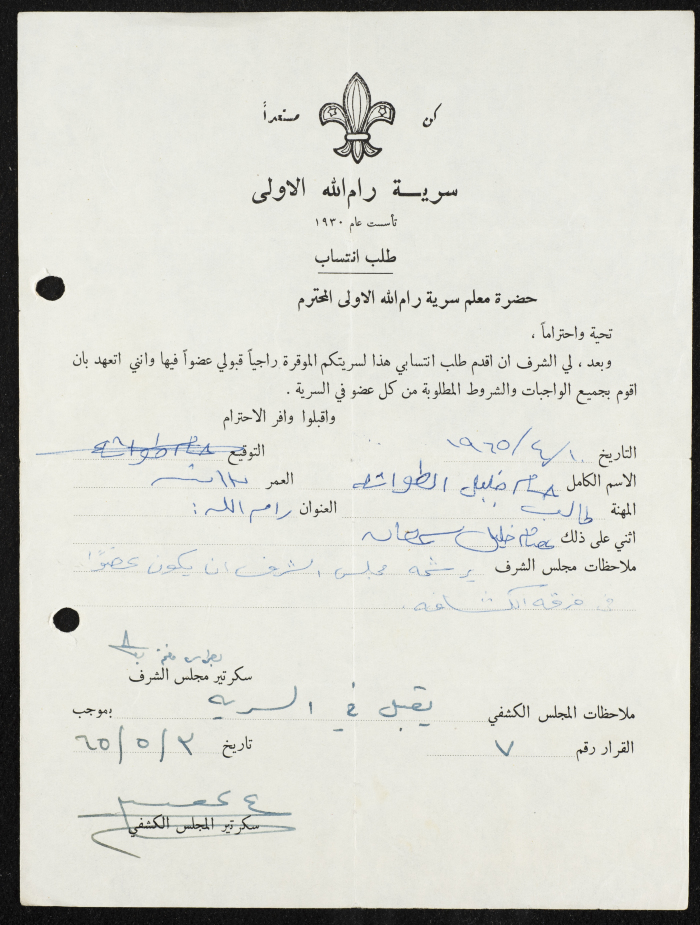 كن مستعداً
سرية رام الله الاولى
تأسست عام ١٩٣٠
طلب انتساب
حضرة معلم سرية رام الله الاولى المحترم
تحية واحتراماً ،
وبعد ، لي الشرف ان اقدم طلب انتسابي هذا لسريتكم الموقرة راجياً قبولي عضواً فيها وانني اتعهد بان
اقوم بجميع الواجبات والشروط المطلوبة من كل عضو في السرية .
واقبلوا وافر الاحترام
التاريخ ١٩٦٥/٤/١٠ التوقيع
الاسم الكامل خليل العمر
المهنة طالب العنوان رام الله :
اثني على ذلك عصام خليل
ملاحظات مجلس الشرف يرشحه مجلس الشرف ان يكون عضوًا
في فرقة الكشافه .
سكرتير مجلس الشرف
ملاحظات المجلس الكشفي يقبل في السريه بموجب
القرار رقم ٧ تاريخ ٦٥/٥/٣
سكرتير المجلس الكشفي